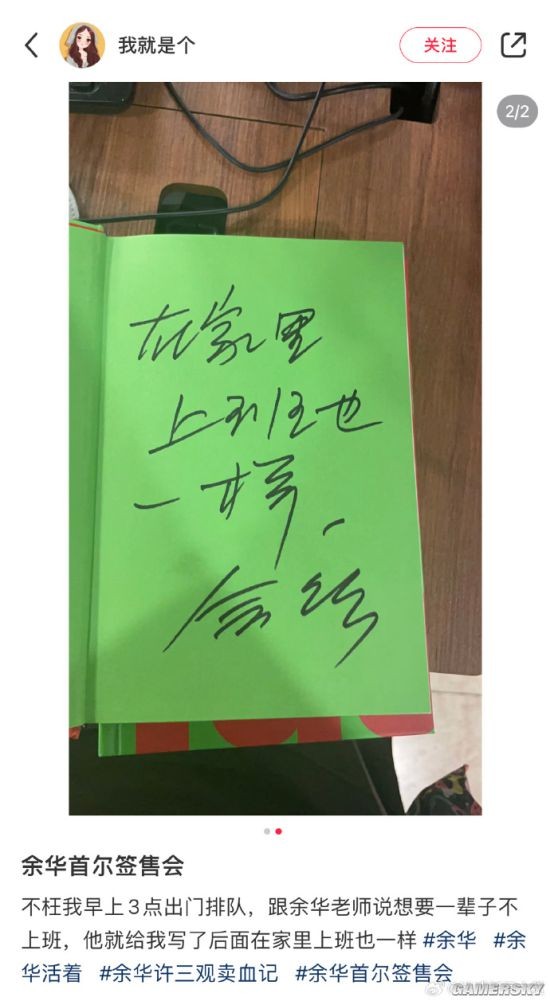 我就是个
关注
2/2
在家里
上班也
一样、
余华
余华首尔签售会
不枉我早上3点出门排队，跟余华老师说想要一辈子不
上班，他就给我写了后面在家里上班也一样 #余华 #余
华活着 #余华许三观卖血记 #余华首尔签售会
GAMERSKY